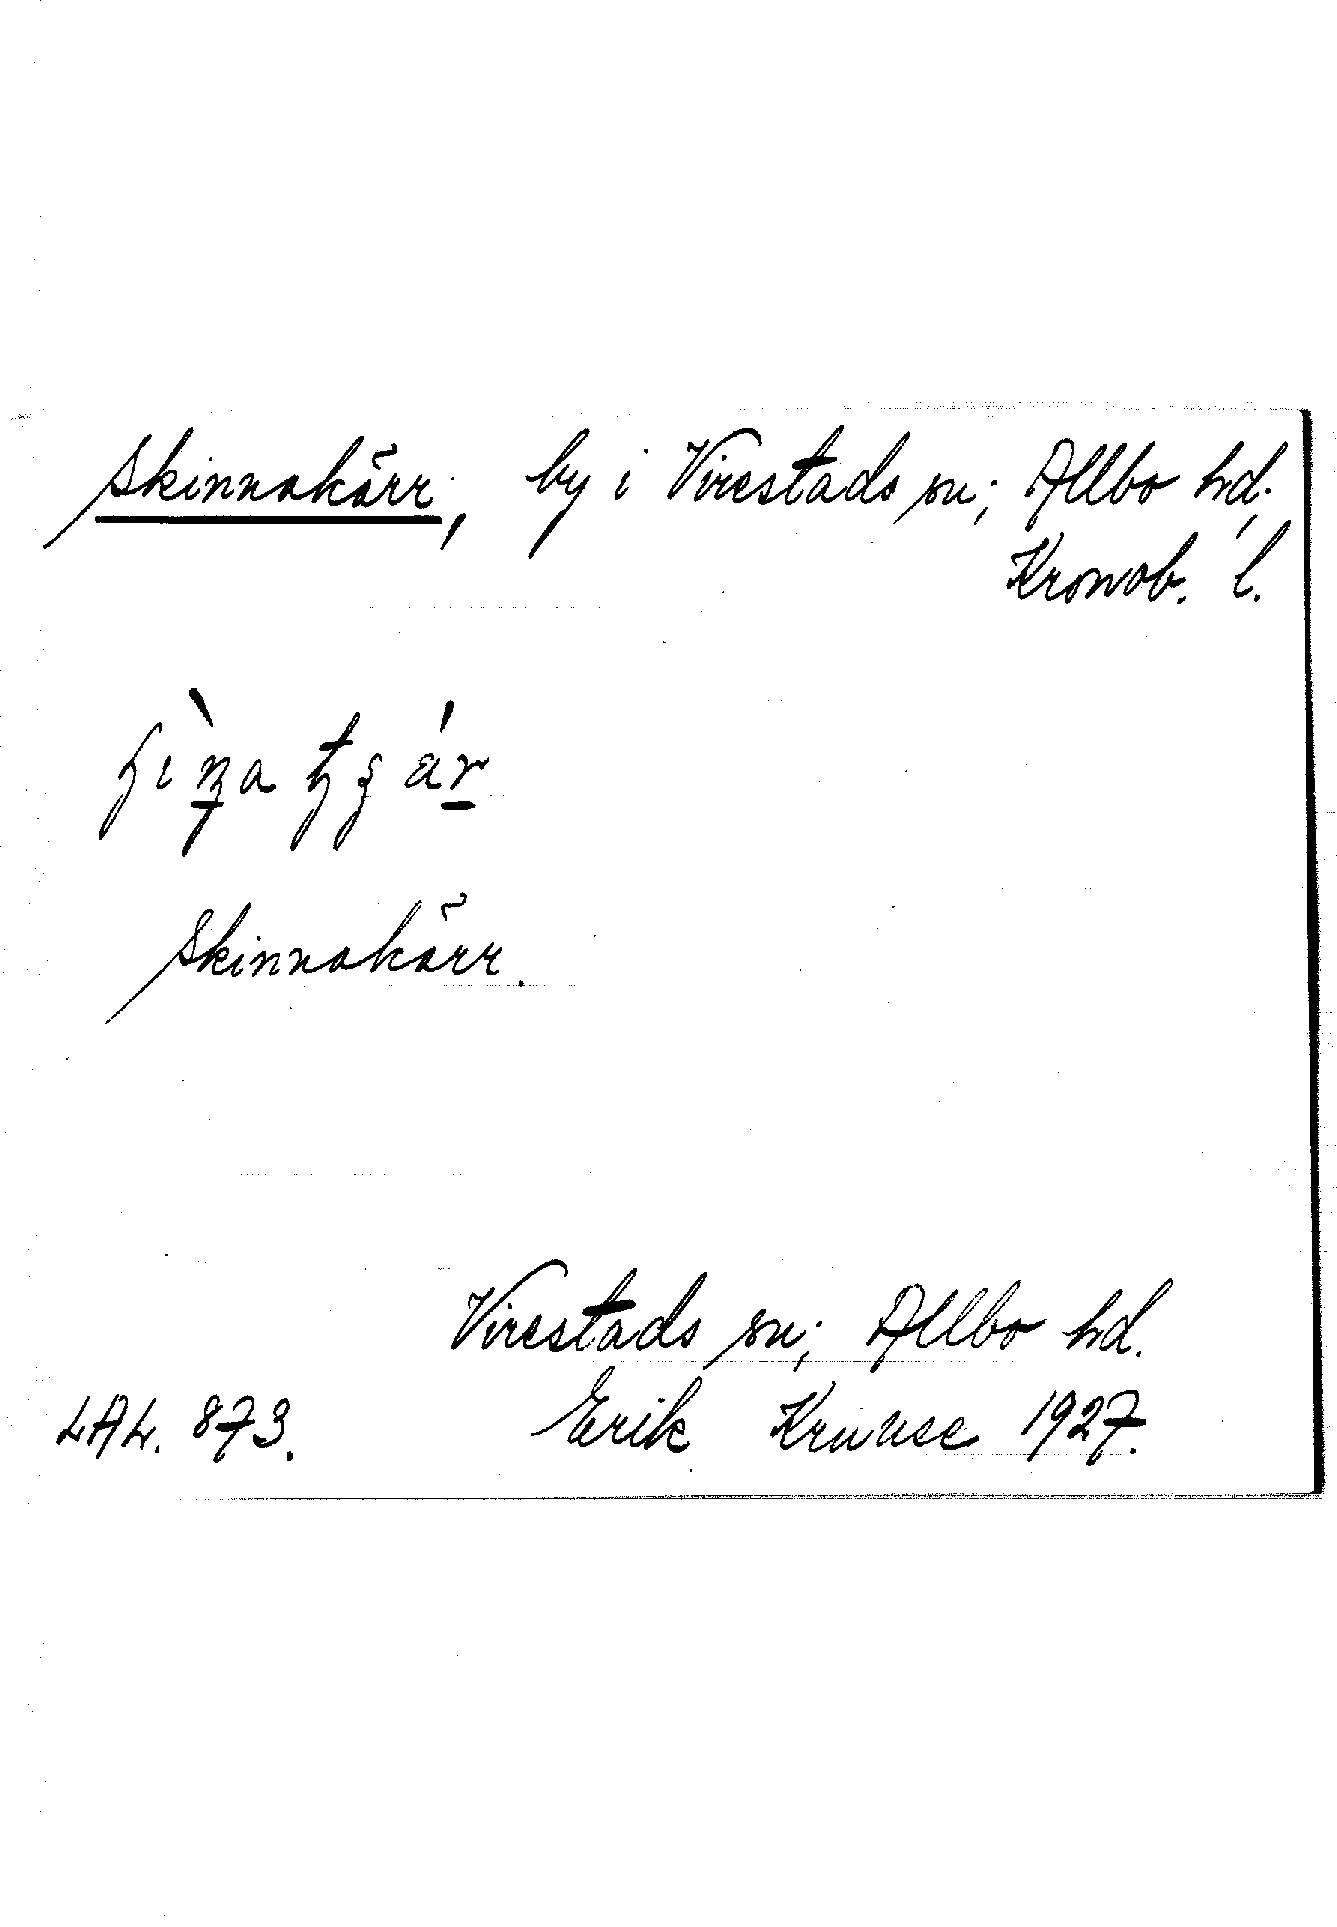 Skinnakärr, by i Virestads sn; Allbo hd,
Kronob. l.
Skinnakärr.
Virestads sn; Allbo hd.
LAL. 873. Erik Kruuse 1927.